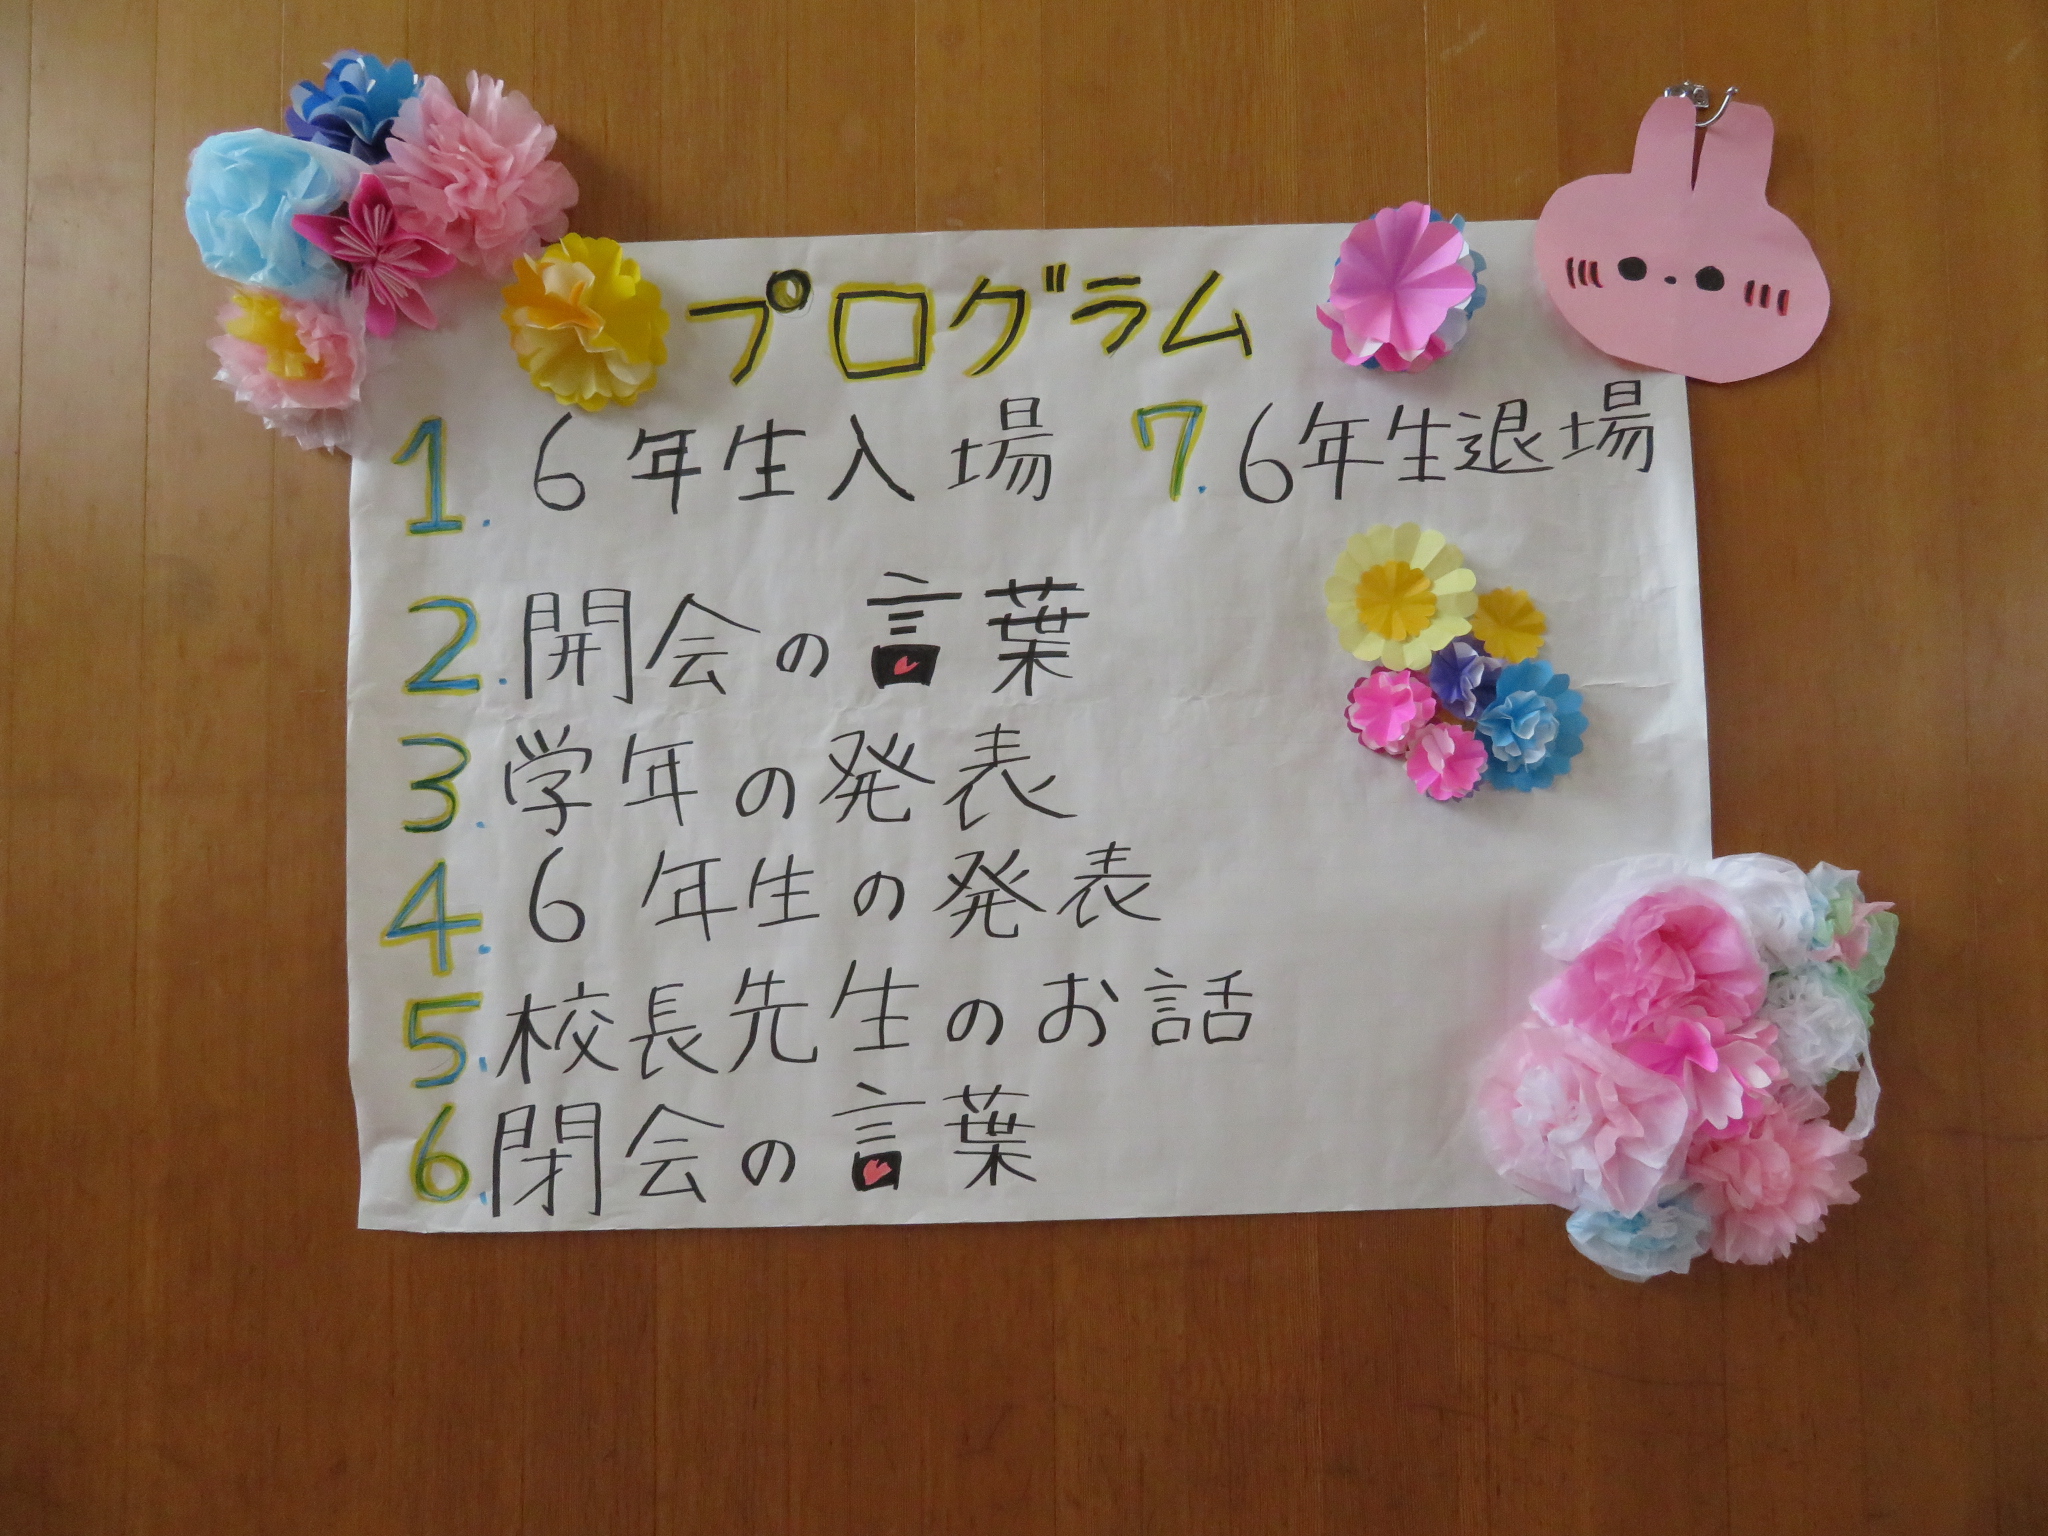 プログラム
1. 6年生入場
2. 開会の言葉
3. 学年の発表
4. 6年生の発表
5. 校長先生のお話
6. 閉会の言葉
7. 6年生退場